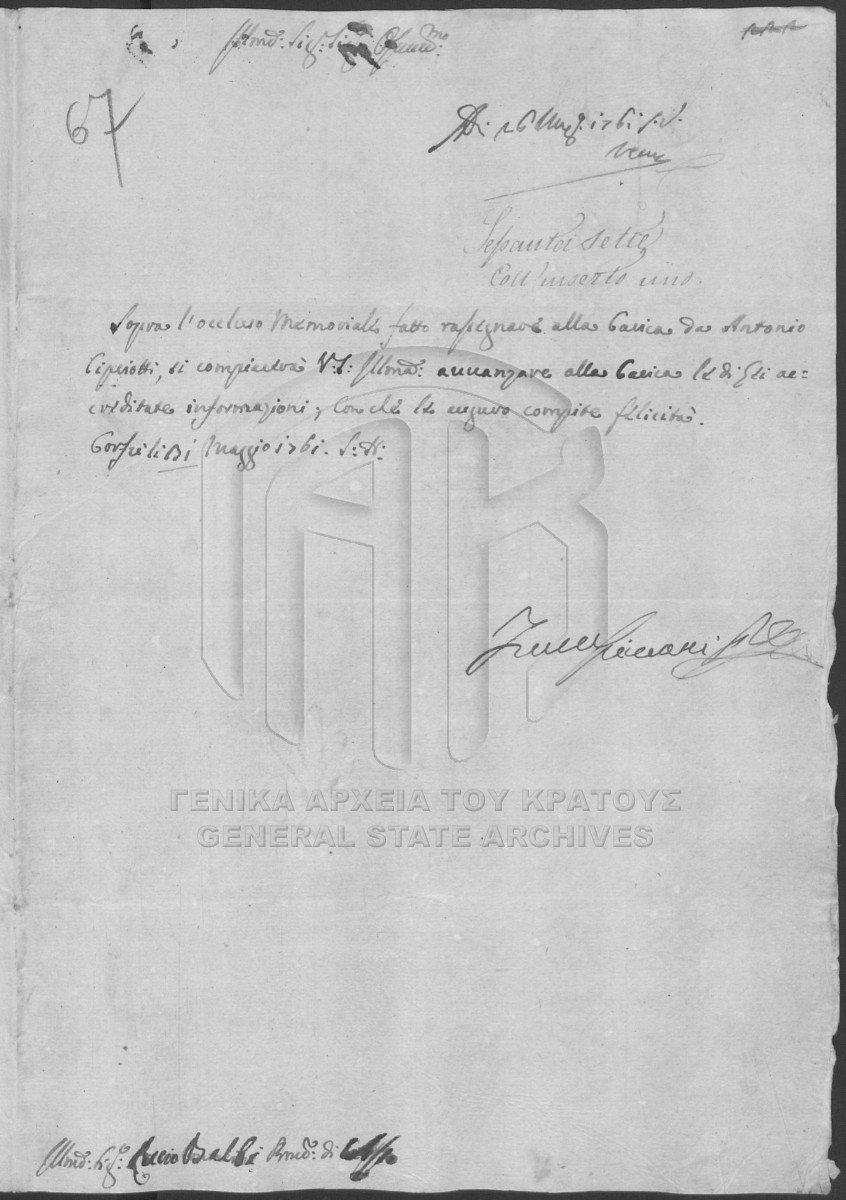 Illmo: Sig: Sig: Osserv:mo
67
Adi 26 Mag: 1761 S.V.
Sessanta sette
Coll'inserto uno.
Sopra l'occluso Memoriale fatto rassegnare alla Carica da Antonio
Cipriotti, si compiacerà V:S: Illma: avvanzare alla Carica le di Lei ac=
creditate informazioni; Con che le auguro compite felicità.
Corfù li Maggio 1761. S:N:
ΓΕΝΙΚΑ ΑΡΧΕΙΑ ΤΟΥ ΚΡΑΤΟΥΣ
GENERAL STATE ARCHIVES
Illmo: Sig: Lucio Balbi di